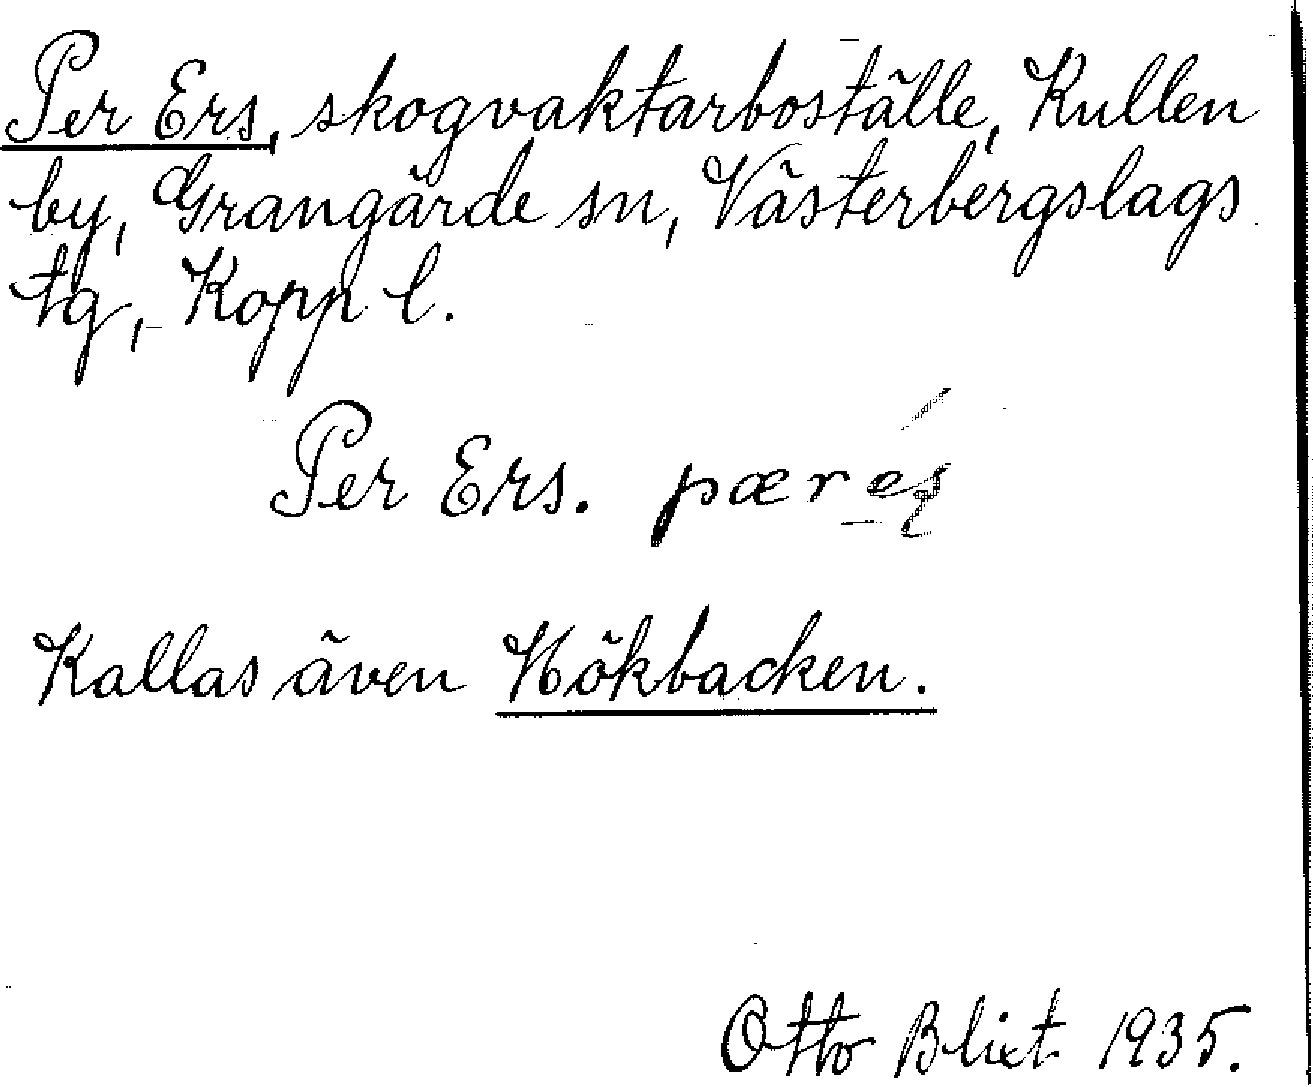 Per Ers, skogvaktarboställe, Kullen
by, Grangärde sn, Västerbergslags
tg, Kopp. l.
Per Ers. pær
Kallas även Hökbacken.
Otto Blixt 1935.